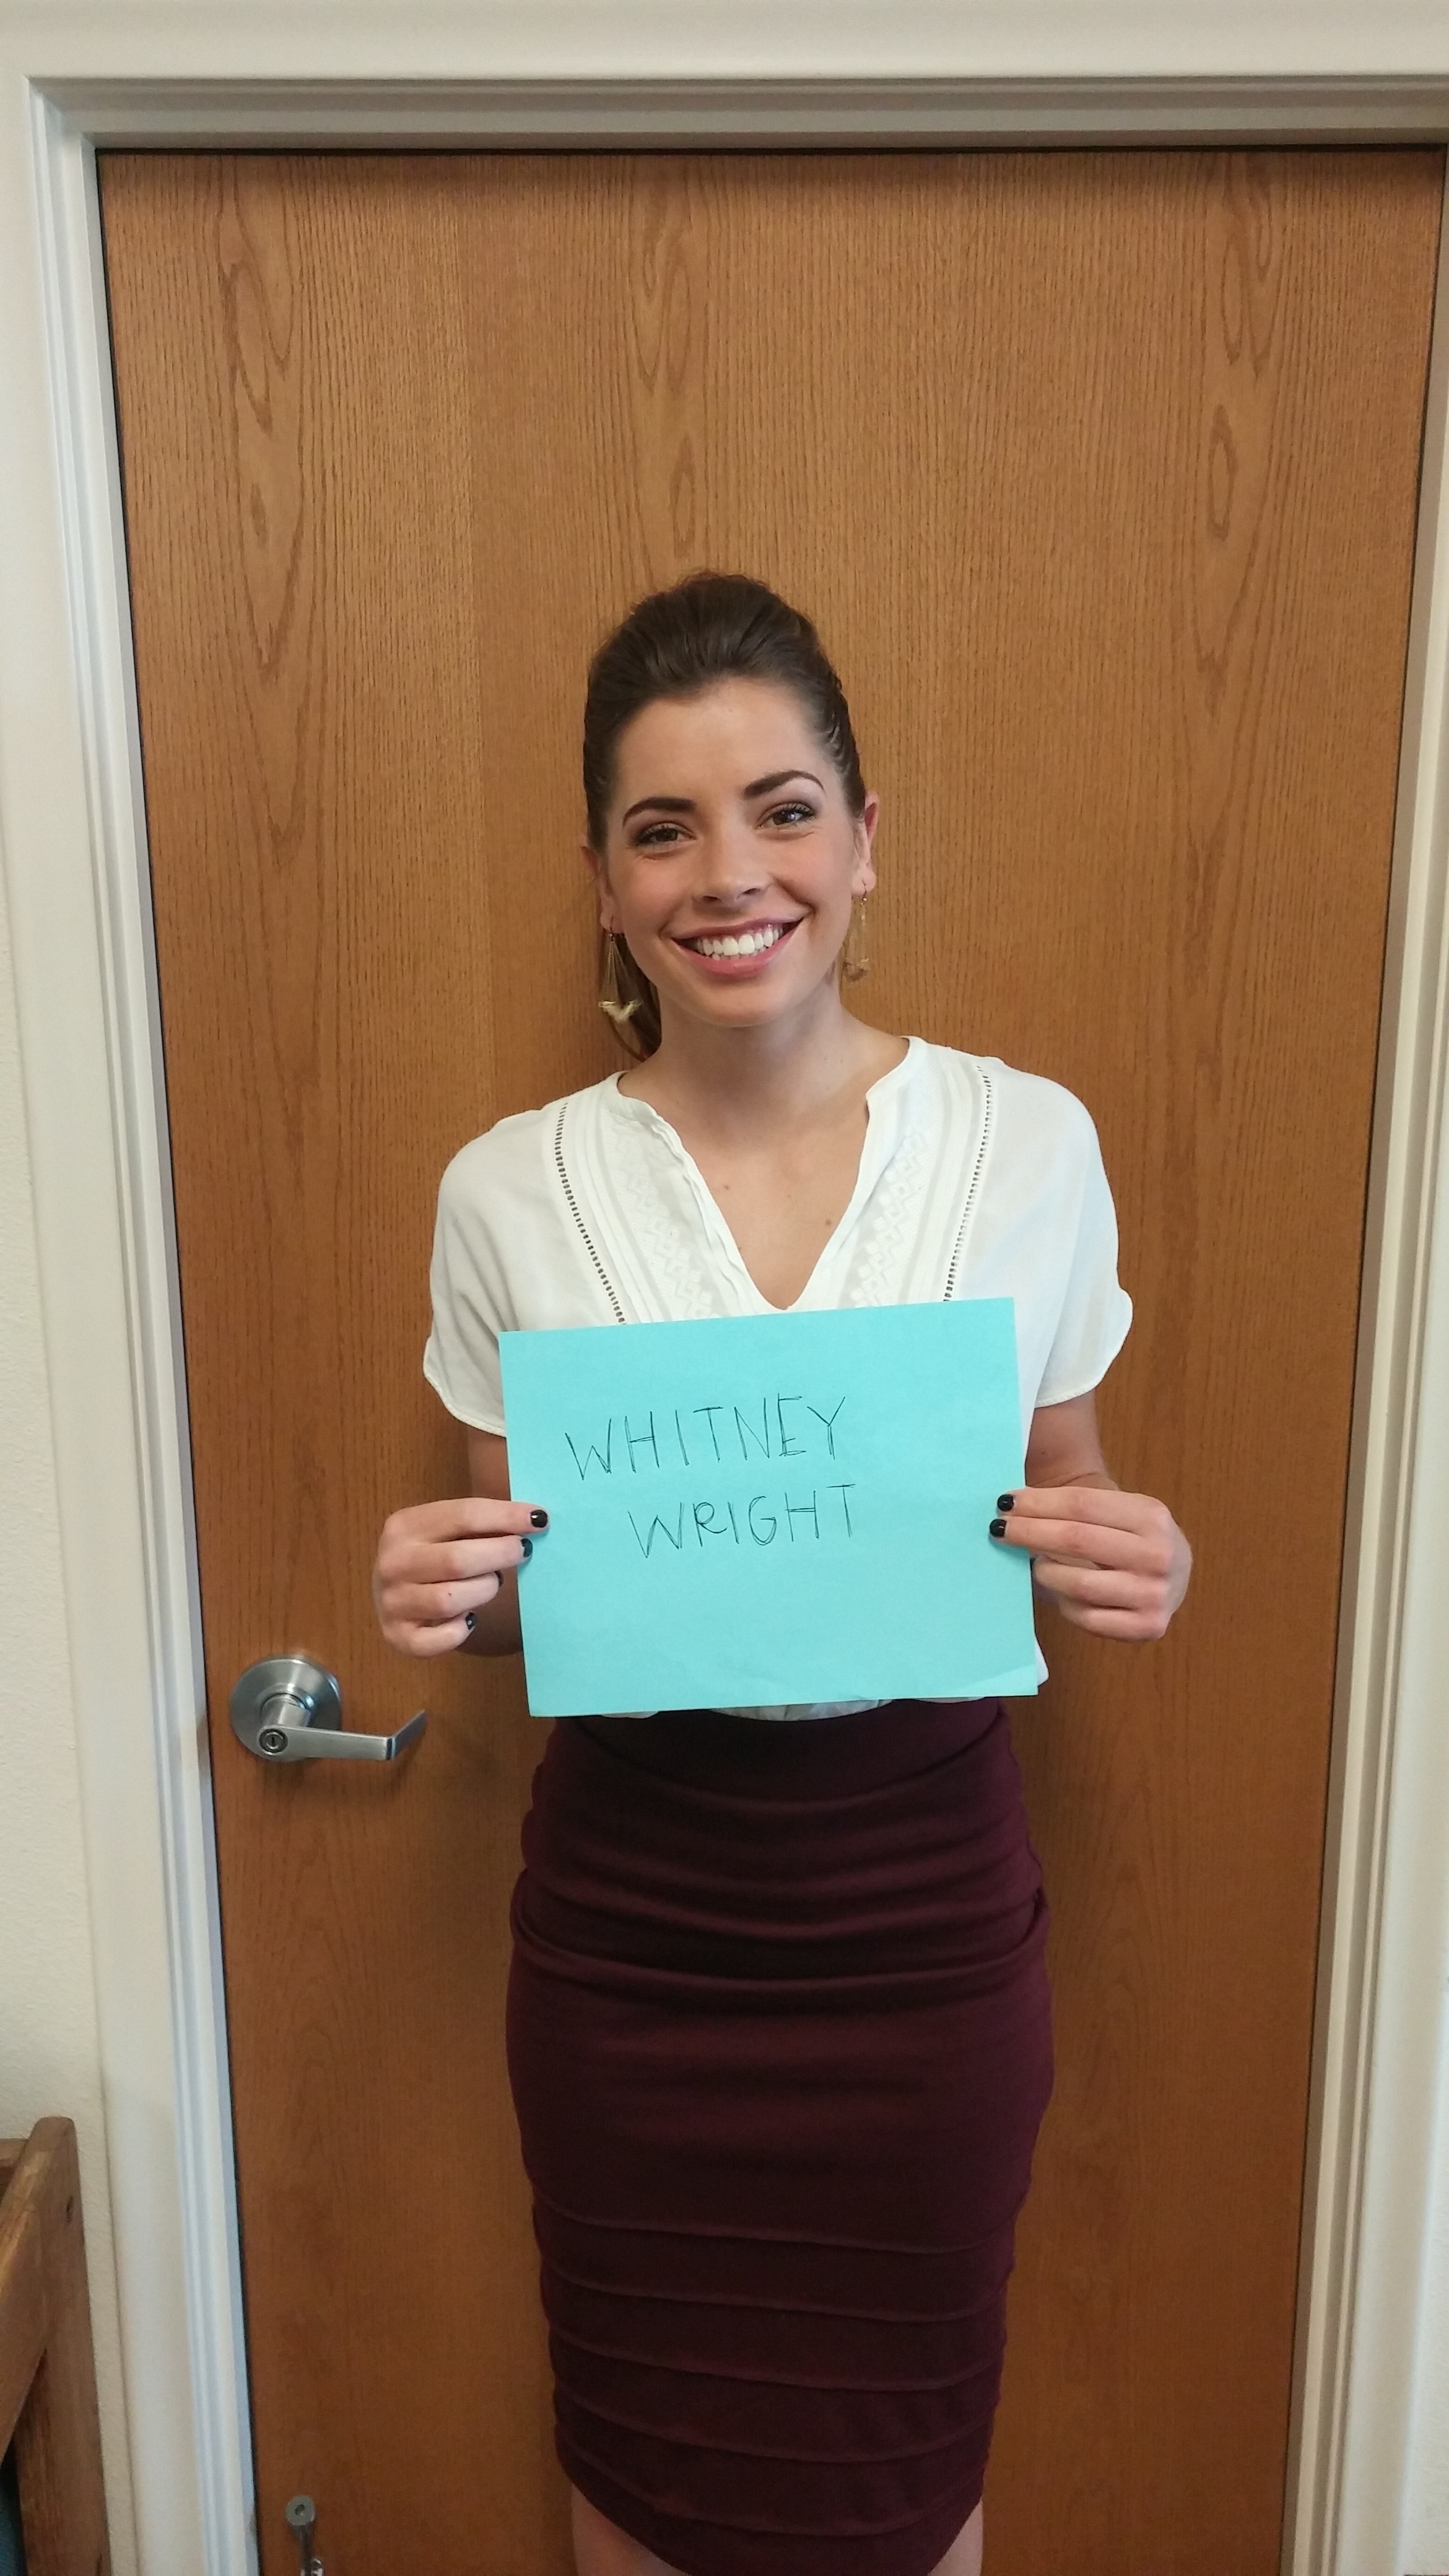 WHITNEY
WRIGHT